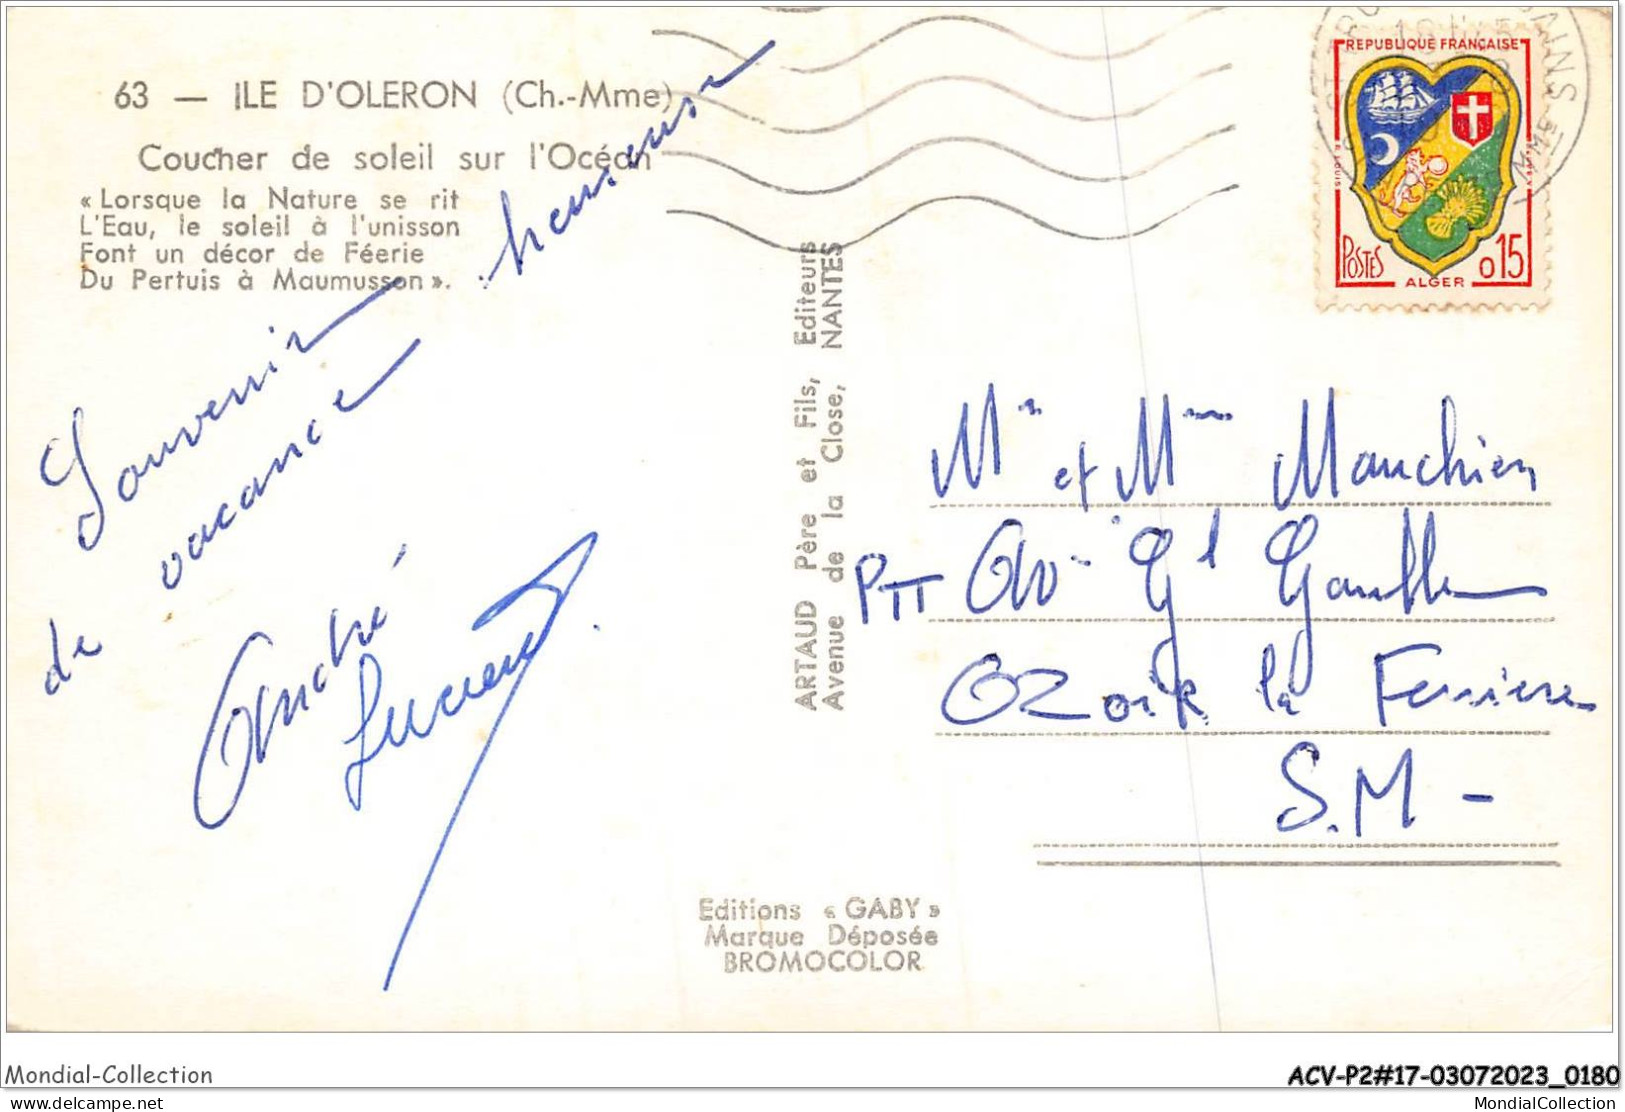 63 — ILE D'OLERON (Ch.-Mme)
Coucher de soleil sur l'Océan
« Lorsque la Nature se rit
L'Eau, le soleil à l'unisson
Font un décor de Féerie
Du Pertuis à Maumusson ».
Souvenir
de vacance heureuse
André
Lucienne
ARTAUD Père et Fils, Editeurs
Avenue de la Close, NANTES
Editions « GABY »
Marque Déposée
BROMOCOLOR
REPUBLIQUE FRANÇAISE
POSTES
0,15
ALGER
Mr et Mme Manchien
PTT Av. Gl Gaulle
Ozoir la Ferriere
S.M -
Mondial-Collection
ACV-P2#17-03072023_0180
delcampe.net
MondialCollection